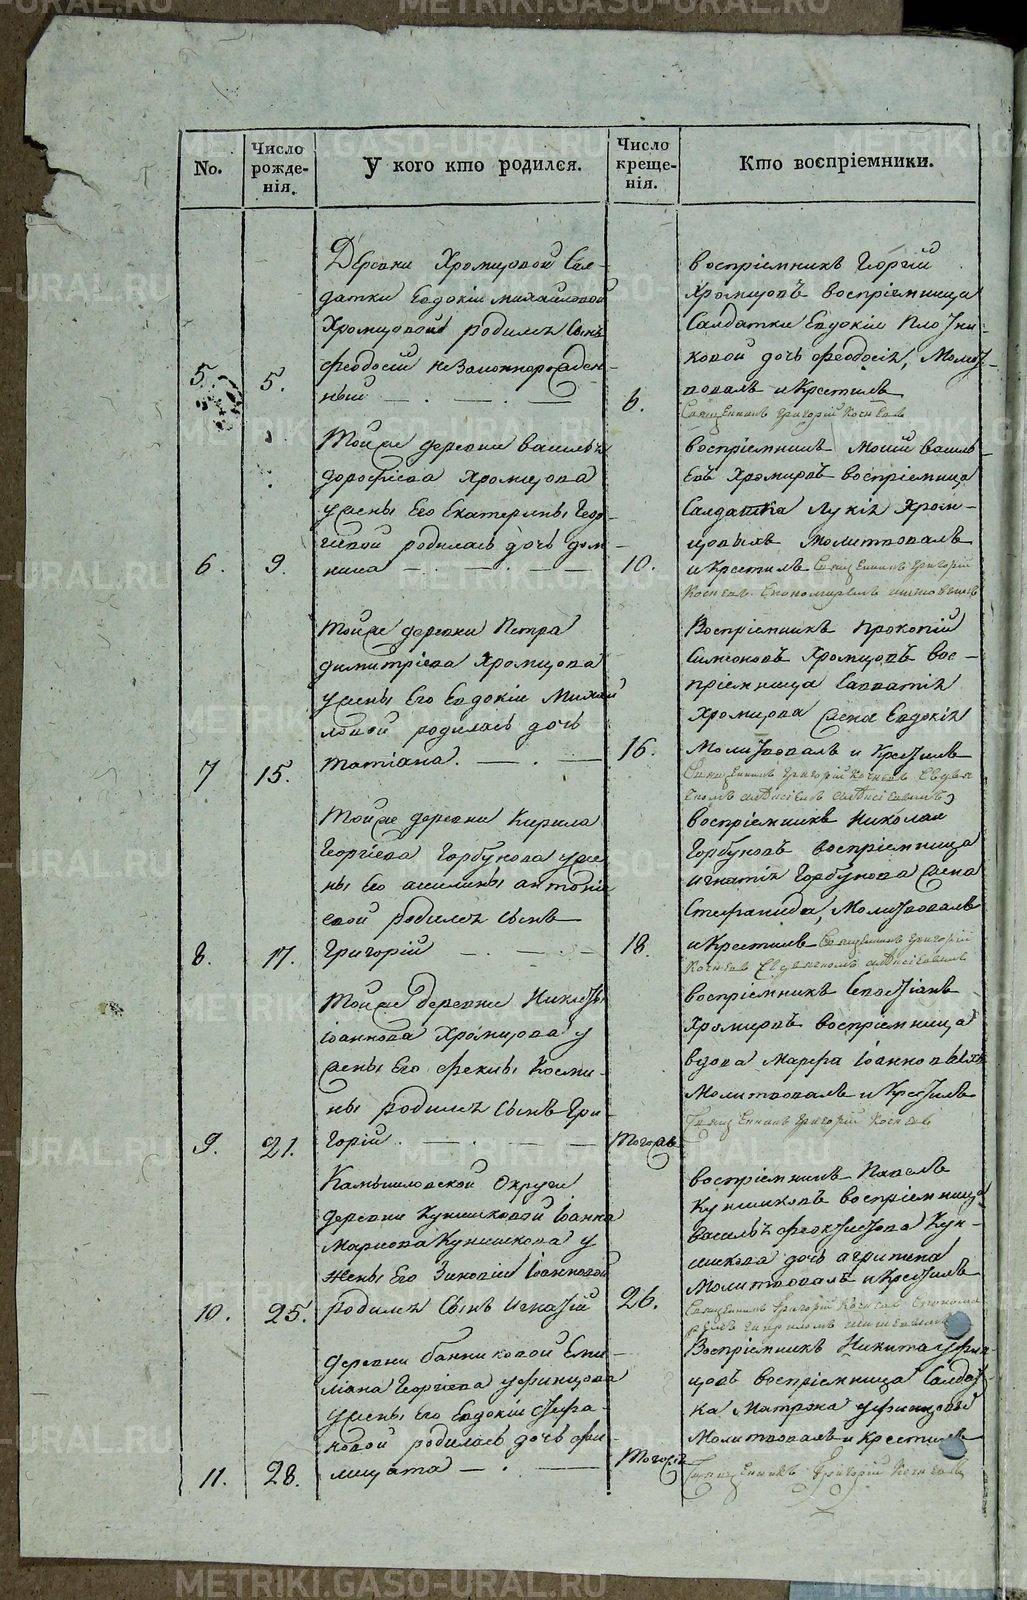 No.
Число рожде-нія.
У кого кто родился.
Число креще-нія.
Кто воспріемники.
5.
5.
Деревни Хромцовой Сал-
датки Евдокіи михайловой
Хромцовой родился сынъ
феодосій незаконнорожден-
ный
6.
воспріемникъ Георгій
Хромцовъ воспріемница
Салдатки Евдокіи Плотни-
ковой дочь феодосія, Молит-
вовалъ и Крестилъ
Священникъ Григорій
6.
9.
Тойже деревни василья
дорофіева Хромцова
у жены Его Екатерины Геор-
гіевой родилась дочь дом-
ника
10.
воспріемникъ васильь-
евъ Хромцовъ воспріемница
Салдатка Хром-
цовыхъ молитвовалъ
и Крестилъ Священникъ Григорій
7
15.
Тойже деревни Петра
димитріева Хромцова
у жены Его Евдокіи Михай
ловой родилась дочь
татіана.
16.
Воспріемникъ прокопій
Симеоновъ Хромцовъ вос-
пріемница Савватія
Хромцова жена Евдокія
Молитвовалъ и Крестилъ
Священникъ Григорій
8.
17.
Тойже деревни Кирила
Георгіева Горбунова у же
ны Его акилины антоніе
евой родился сынъ
Григорій
18.
воспріемникъ Николай
Горбуновъ воспріемница
игнатія Горбунова жена
Стефанида, Молитвовалъ
и Крестилъ Священникъ Григорій
9.
21.
Тойже деревни Никиты
іоаннова Хромцова у
жены Его феклы Косми-
ны родился сынъ Гри-
горій.
тогожъ
воспріемникъ Севастіанъ
Хромцовъ воспріемница
вдова марфа іоанновыхъ
Молитвовалъ и Крестилъ
Священникъ Григорій
10.
25.
Камышловской округи
деревни Кунишковой іоанна
Маркова Кунишкова у
жены Его Зиновіи іоанновой
родился сынъ игнатій
26.
воспріемникъ Павелъ
Кунишковъ воспріемница
василья феоктистова Кун-
ишкова дочь агрипена
Молитвовалъ и Крестилъ
Священникъ Григорій
11.
28.
деревни банниковой Еми-
ліана Георгіева уфинцова
у жены Его Евдокіи Стефа-
новой родилась дочь фи-
лицата
тогожъ
Воспріемникъ Никита уфин-
цовъ воспріемница Салдат-
ка Матрона уфинцовы
Молитвовалъ и Крестилъ
Священникъ Григорій
METRIKI.GASO-URAL.RU